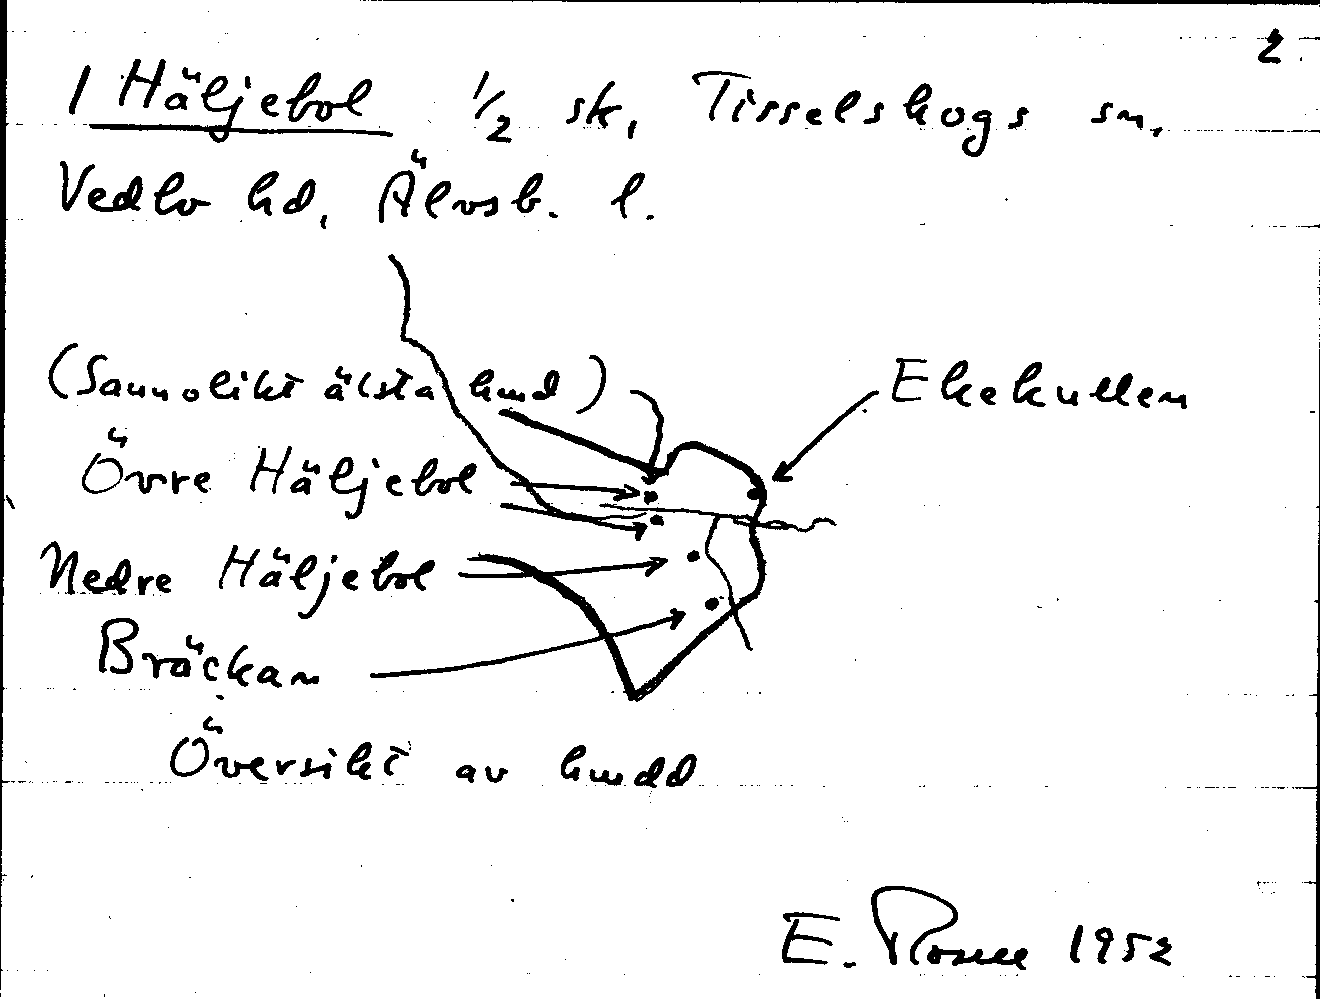 2.
1 Häljebol 1/2 sk, Tisselskogs sn,
Vedbo hd, Älvsb. l.
(Sannolikt älsta hmd)
Ekekullen
Övre Häljebol
Nedre Häljebol
Bräckan
Översikt av hmdd
E. 1952